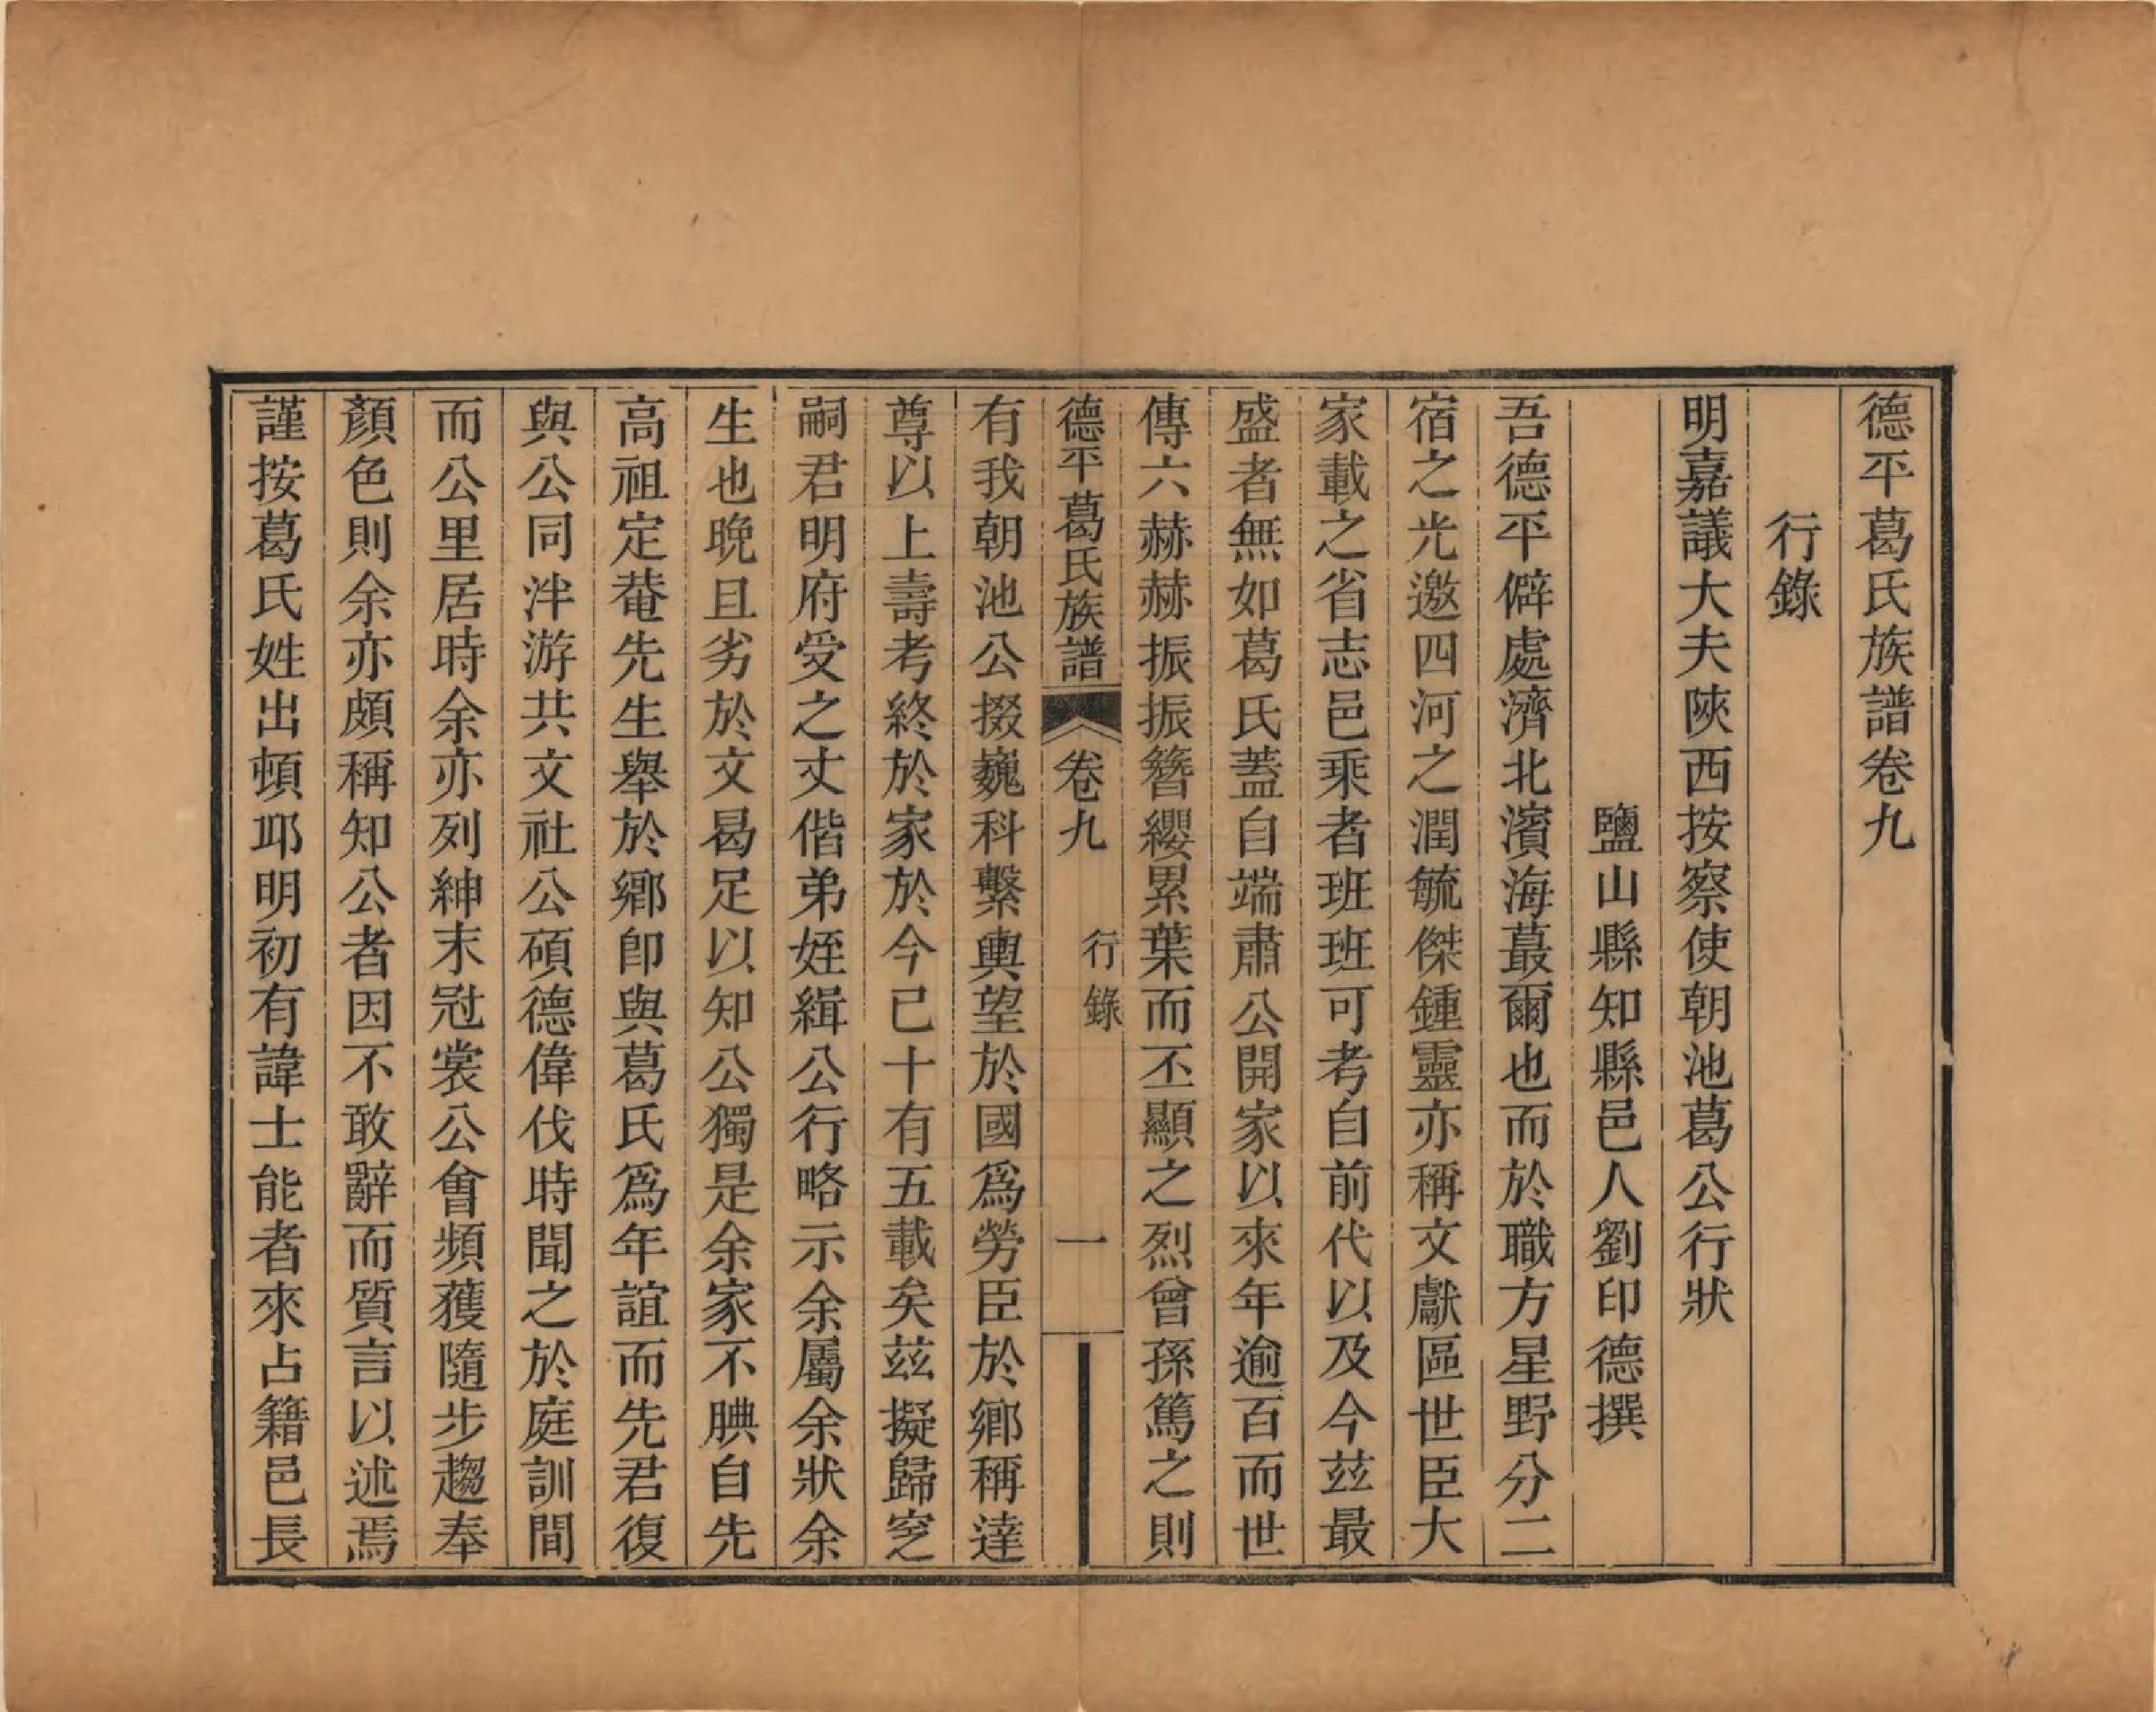 德平葛氏族譜卷九
行錄
明嘉議大夫陝西按察使朝池葛公行狀
鹽山縣知縣邑人劉印德撰
吾德平僻處濟北濱海蕞爾也而於職方星野分二
宿之光邀四河之潤毓傑鍾靈亦稱文獻區世臣大
家載之省志邑乘者班班可考自前代以及今茲最
盛者無如葛氏蓋自端肅公開家以來年逾百而世
傳六赫赫振振簪纓累葉而丕顯之烈曾孫篤之則
德平葛氏族譜 卷九 行錄 一
有我朝池公掇巍科繫輿望於國為勞臣於鄉稱達
尊以上壽考終於家於今已十有五載矣茲擬歸窆
嗣君明府受之丈偕弟姪緝公行略示余屬余狀余
生也晚且劣於文曷足以知公獨是余家不腆自先
高祖定菴先生舉於鄉卽與葛氏爲年誼而先君復
與公同泮游共文社公碩德偉伐時聞之於庭訓間
而公里居時余亦列紳末冠裳公會頻獲隨步趨奉
顏色則余亦頗稱知公者因不敢辭而質言以述焉
謹按葛氏姓出頓邱明初有諱士能者來占籍邑長